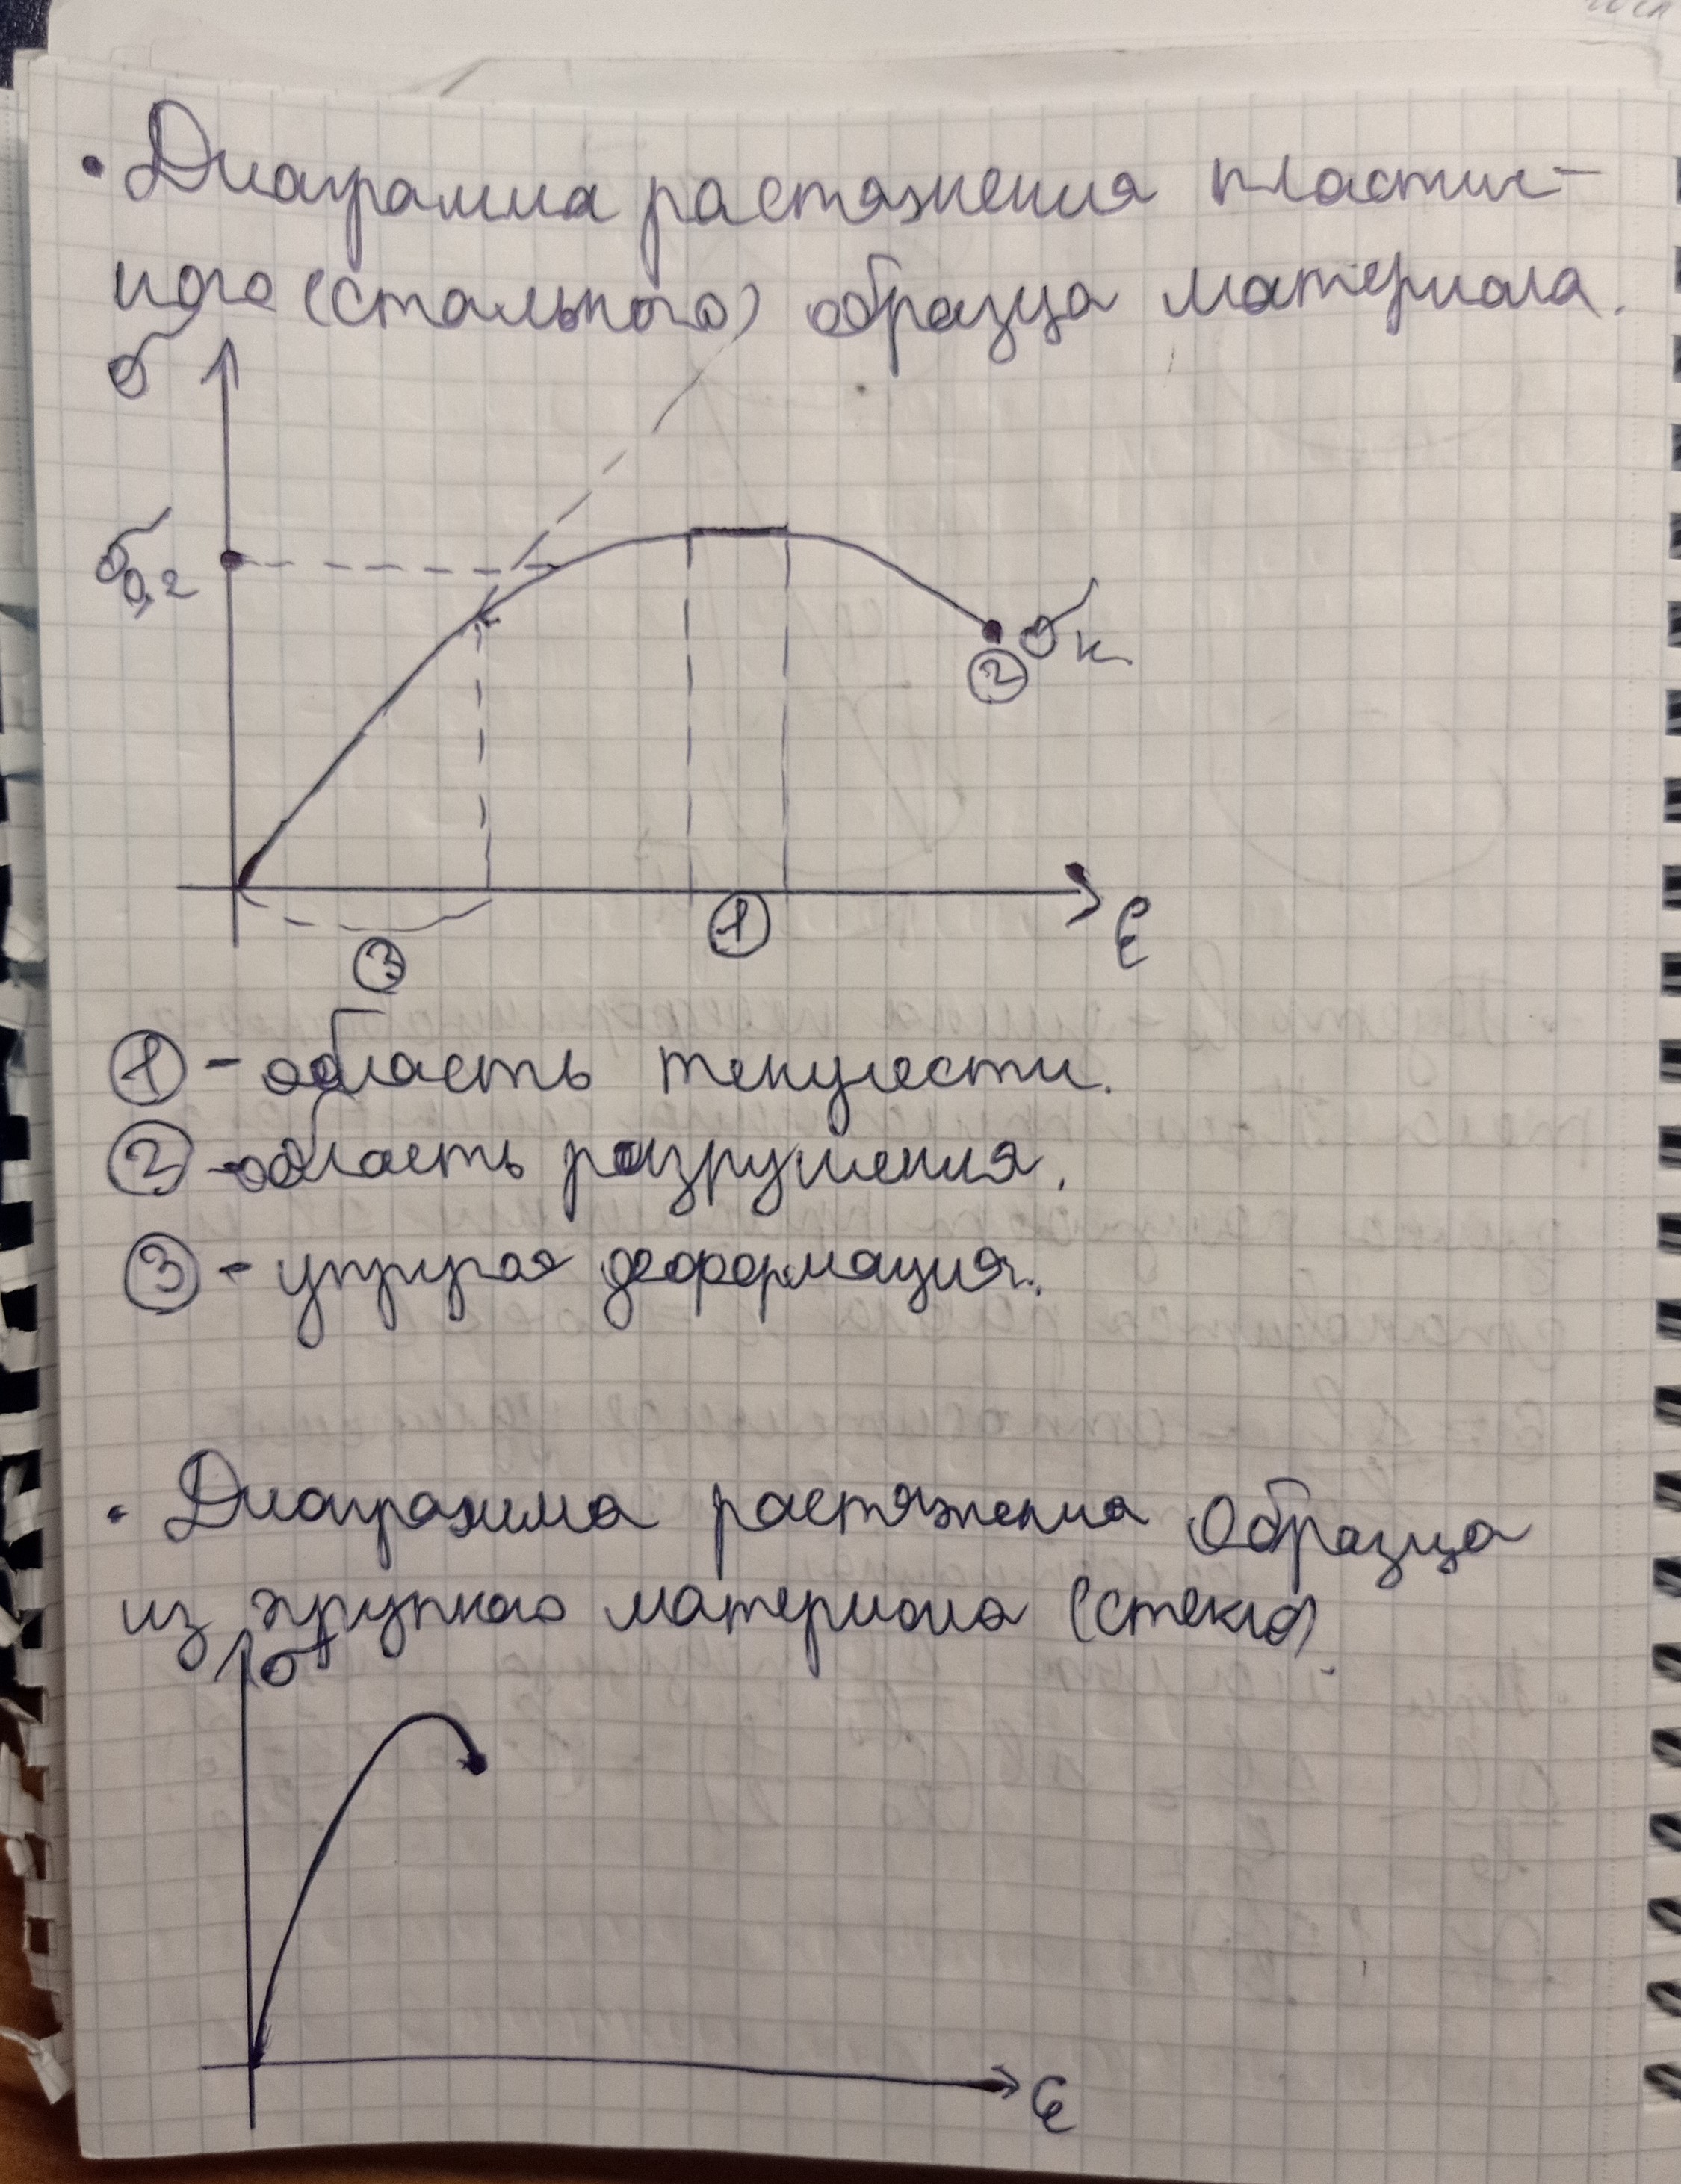 • Диаграмма растяжения пластич-
ного (стального) образца материала.
σ
σ0,2
σк
②
ε
①
③
① - область текучести.
② - область разрушения.
③ - упругая деформация.
• Диаграмма растяжения образца
из хрупкого материала (стекла).
σ
ε